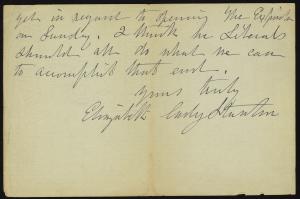 yet in regard to opening the Expositn
on Sunday. I think we Liberals
should all do what we can
to accomplish that end.
yours truly
Elizabeth Cady Stanton